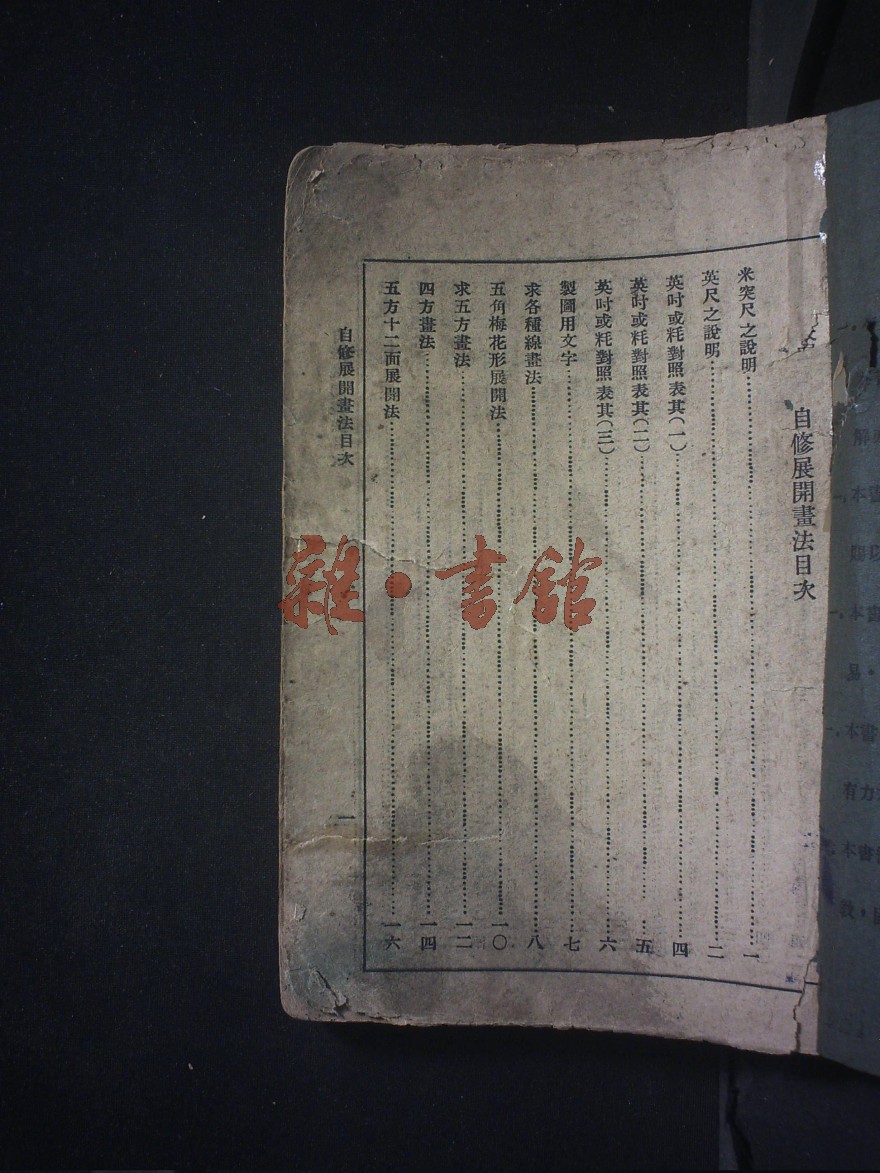 自修展開畫法目次
米突尺之說明……一
英尺之說明……二
英吋或粍對照表其(一)……四
英吋或粍對照表其(二)……五
英吋或粍對照表其(三)……六
製圖用文字……七
求各種線畫法……八
五角梅花形展開法……一〇
求五方畫法……一二
四方畫法……一四
五方十二面展開法……一六
自修展開畫法目次
一
雜·書館